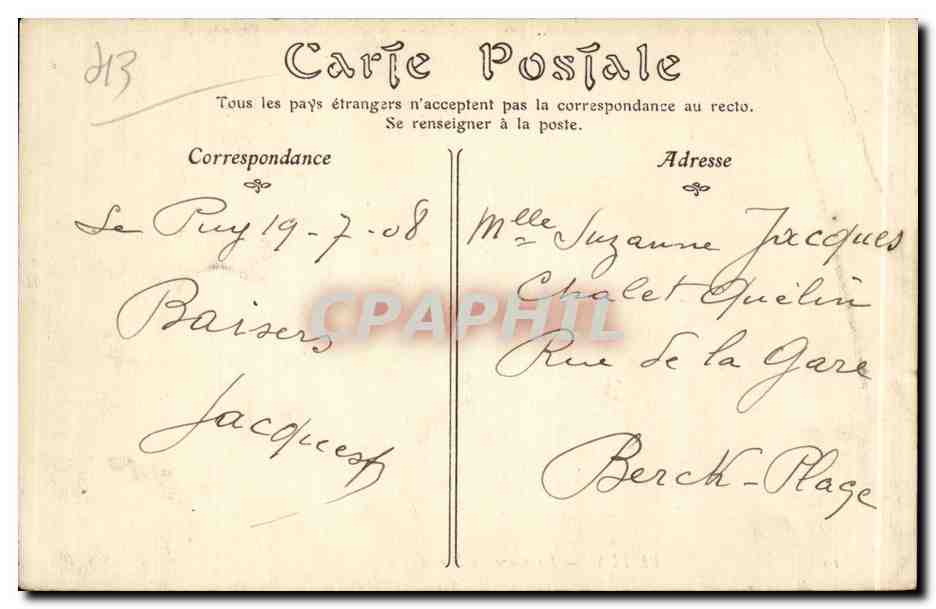 43
Carte Postale
Tous les pays étrangers n'acceptent pas la correspondance au recto.
Se renseigner à la poste.
Correspondance
Le Puy 19-7-08
Baisers
Jacques
Adresse
Mlle Suzanne Jacques
Chalet Quélin
Rue de la Gare
Berck-Plage
CPAPHIL